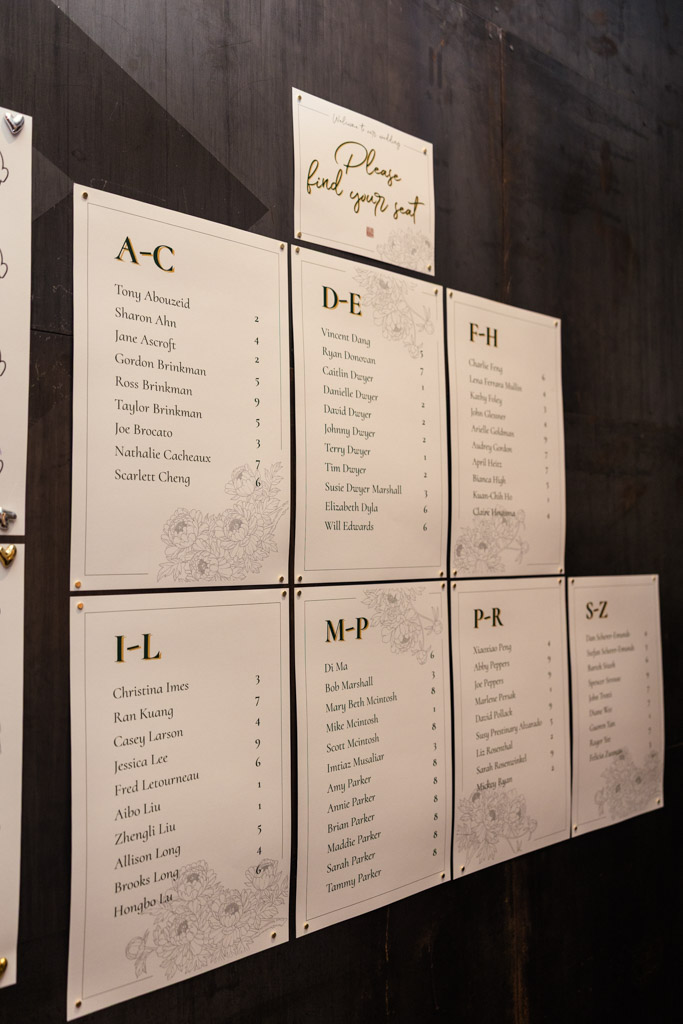 Welcome to our wedding
Please
find your seat
A-C
Tony Abouzeid 2
Sharon Ahn 4
Jane Ascroft 2
Gordon Brinkman 5
Ross Brinkman 9
Taylor Brinkman 5
Joe Brocato 3
Nathalie Cacheaux 7
Scarlett Cheng 6
D-E
Vincent Dang 5
Ryan Donovan 7
Caitlin Dwyer 1
Danielle Dwyer 2
David Dwyer 2
Johnny Dwyer 2
Terry Dwyer 1
Tim Dwyer 2
Susie Dwyer Marshall 3
Elizabeth Dyla 6
Will Edwards 6
F-H
Charlie Feng
Lena Ferrara Mullin
Kathy Foley
John Glessner
Arielle Goldman
Audrey Gordon
April Heitz
Bianca High
Kuan-Chih Ho
Claire
I-L
Christina Imes 3
Ran Kuang 7
Casey Larson 4
Jessica Lee 9
Fred Letourneau 6
Aibo Liu 1
Zhengli Liu 1
Allison Long 5
Brooks Long 4
Hongbo Lu 6
M-P
Di Ma 6
Bob Marshall 3
Mary Beth Mcintosh 8
Mike Mcintosh 1
Scott Mcintosh 8
Imtiaz Musaliar 3
Amy Parker 8
Annie Parker 8
Brian Parker 8
Maddie Parker 8
Sarah Parker 8
Tammy Parker 8
P-R
Xiaoxiao Peng
Abby Peppers
Joe Peppers
Marlene Persak
David Pollack
Susy Prestinary Alvarado
Liz Rosenthal
Sarah Rosenwinkel
Mickey Ryan
S-Z